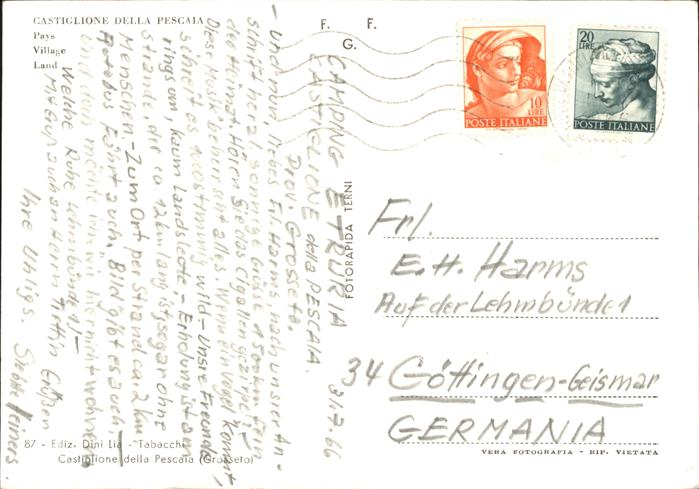 CASTIGLIONE DELLA PESCAIA
Pays
Village
Land
F. F.
G.
10
LIRE
POSTE ITALIANE
20
LIRE
POSTE ITALIANE
CAMPING ETRURIA 31.7.66
CASTIGLIONE della PESCAIA.
Prov. Grosseto.
- Und nun, liebes Frl. Harms, nach unsrer An-
schrift 1241 sonnige Grüsse 1500 km fern
der Heimat. Hören Sie das Cigallengezirpe? -
Diese "Musik" beherrscht alles. Wenn ein Vogel kommt,
schreit es 1000stimmig wild - Unsre Freunde
rings um, kaum Landsleute - Erholung ist am
Strande, der ca 12 km lang ist, sogar ohne
Menschen - Zum Ort per Strand ca 2 km
Autobus fährt auch, BILD gibt es auch,
und doch möchte ich hier nicht wohnen
Welche Ruhe Lehmbünde 1! -
Mit Gruß auch an Herrn Trittin Grüßen
Ihre Uhligs.
FOTORAPIDA TERNI
Frl.
E. H. Harms
Auf der Lehmbünde 1
34 Göttingen-Geismar
GERMANIA
87 - Ediz. Dini Lia - Tabacchi
Castiglione della Pescaia (Grosseto)
VERA FOTOGRAFIA - RIP. VIETATA